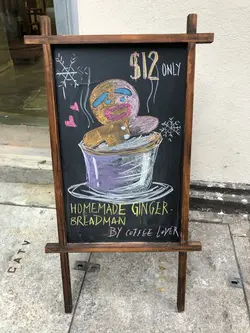 $12 ONLY
HOMEMADE GINGER-
BREADMAN
BY COFFEE LOVER